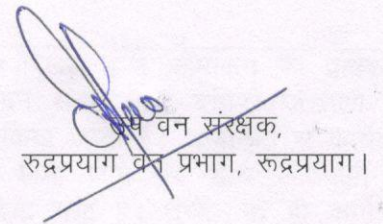 उप वन संरक्षक,
रुद्रप्रयाग वन प्रभाग, रूद्रप्रयाग।